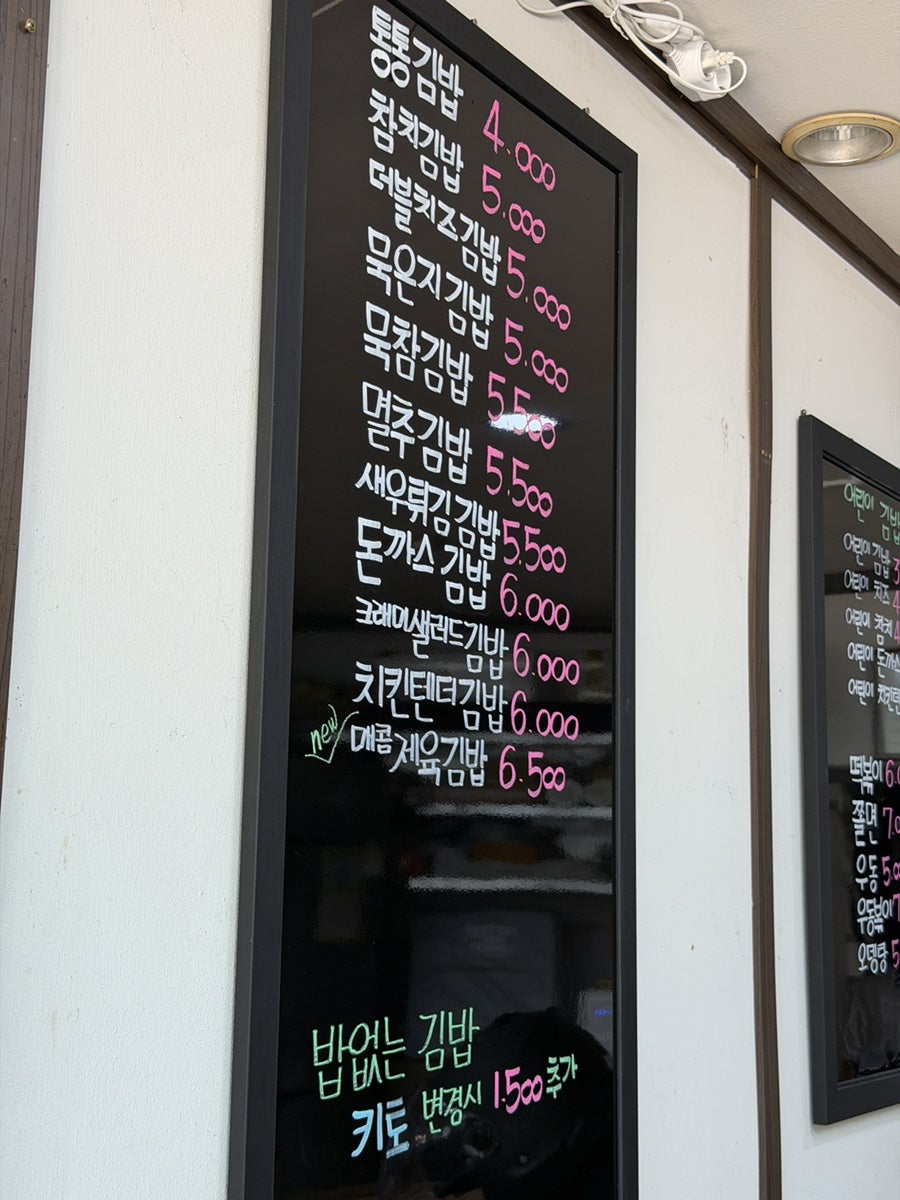 통통김밥 4.000
참치김밥 5.000
더블치즈김밥 5.000
묵은지김밥 5.000
묵참김밥 5.500
멸추김밥 5.500
새우튀김김밥 5.500
돈까스김밥 6.000
크래미샐러드김밥 6.000
치킨텐더김밥 6.000
new 매콤제육김밥 6.500
밥없는 김밥
키토 변경시 1.500 추가
어린이 김밥
어린이 김밥 3
어린이 치즈 4
어린이 참치 4
어린이 돈까스
어린이 치킨텐
떡볶이 6.0
쫄면 7.0
우동 5.00
우동볶이 7
오뎅탕 5